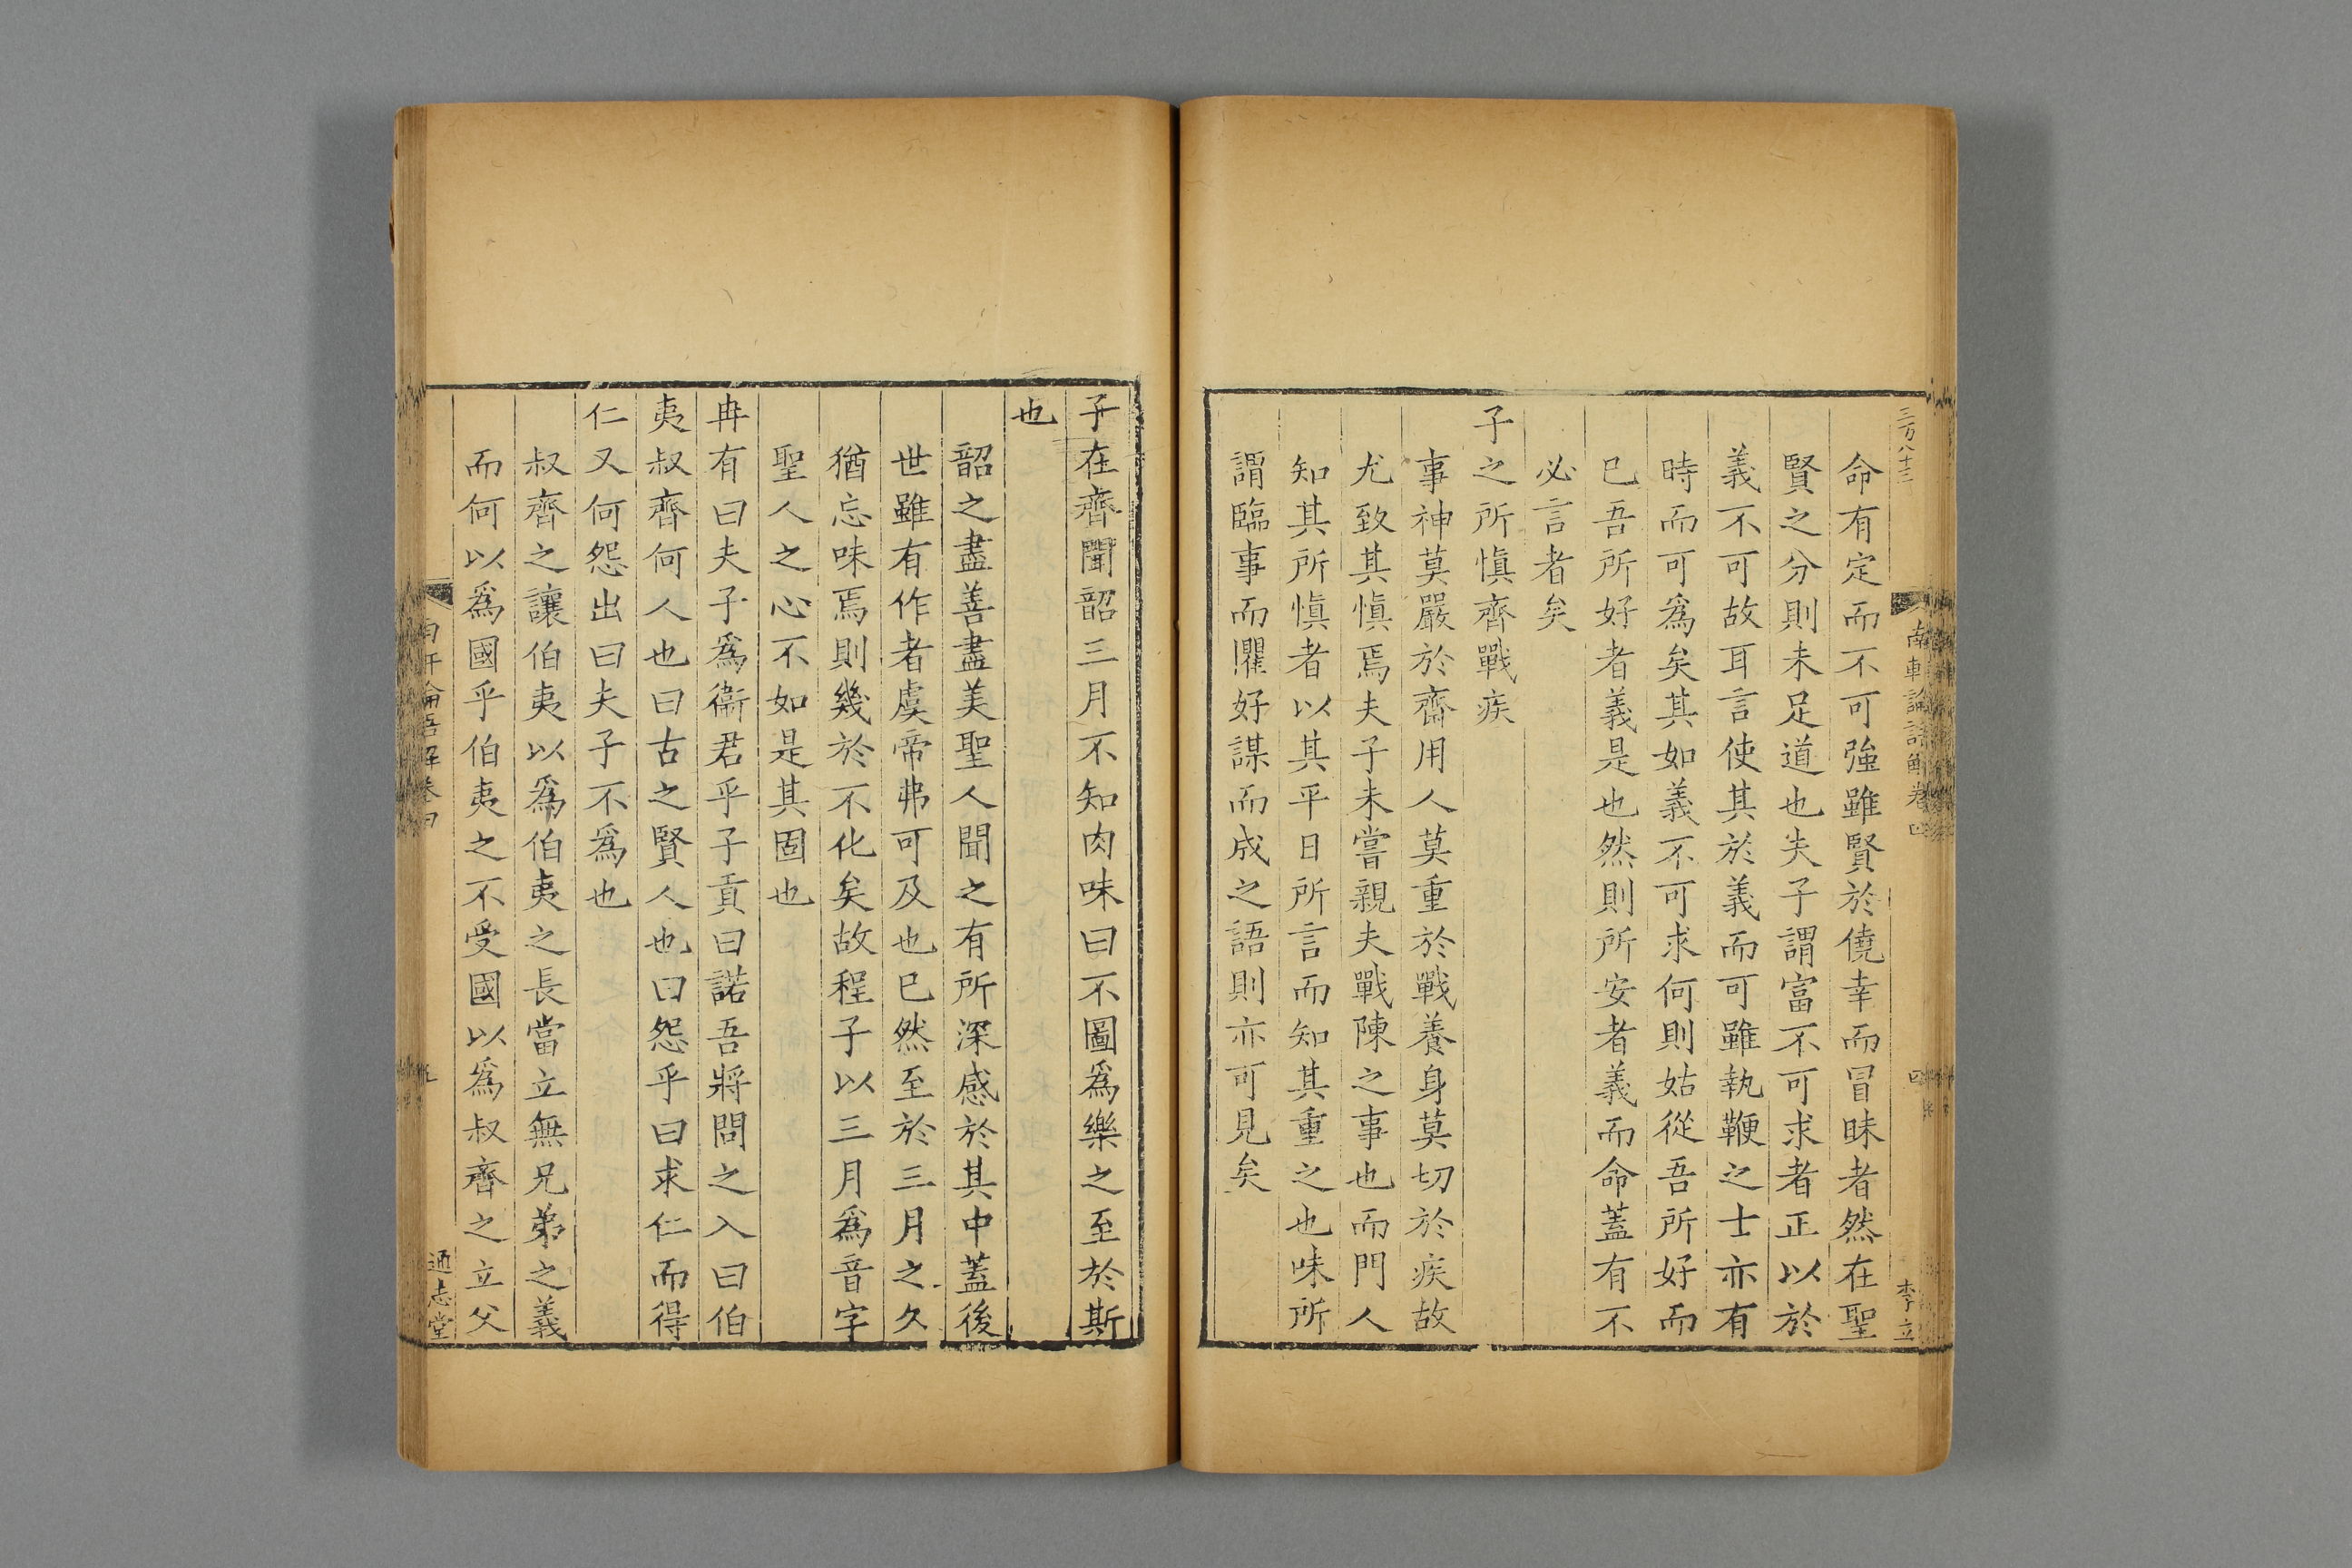 三万八十三
南軒論語解卷四
四
李立
命有定而不可強雖賢於僥幸而冒昧者然在聖
賢之分則未足道也夫子謂富不可求者正以於
義不可故耳言使其於義而可雖執鞭之士亦有
時而可爲矣其如義不可求何則姑從吾所好而
巳吾所好者義是也然則所安者義而命蓋有不
必言者矣
子之所愼齊戰疾
事神莫嚴於齋用人莫重於戰養身莫切於疾故
尤致其愼焉夫子未嘗親夫戰陳之事也而門人
知其所愼者以其平日所言而知其重之也味所
謂臨事而懼好謀而成之語則亦可見矣
子在齊聞韶三月不知肉味曰不圖爲樂之至於斯
也
韶之盡善盡美聖人聞之有所深感於其中蓋後
世雖有作者虞帝弗可及也巳然至於三月之久
猶忘味焉則幾於不化矣故程子以三月爲音字
聖人之心不如是其固也
冉有曰夫子爲衞君乎子貢曰諾吾將問之入曰伯
夷叔齊何人也曰古之賢人也曰怨乎曰求仁而得
仁又何怨出曰夫子不爲也
叔齊之讓伯夷以爲伯夷之長當立無兄弟之義
而何以爲國乎伯夷之不受國以爲叔齊之立父
南軒論語解卷四
通志堂